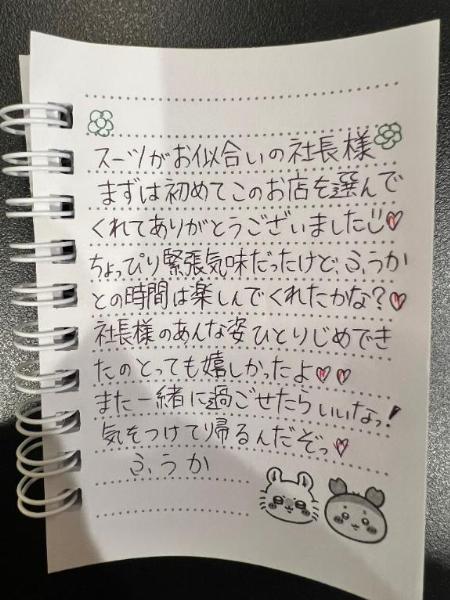 スーツがお似合いの社長様
まずは初めてこのお店を選んで
くれてありがとうございました♡
ちょっぴり緊張気味だったけど、ふうか
との時間は楽しんでくれたかな?♡
社長様のあんな姿ひとりじめでき
たのとっても嬉しかったよ♡♡
また一緒に過ごせたらいいなっ!
気をつけてり帰るんだぞっ♡
ふうか